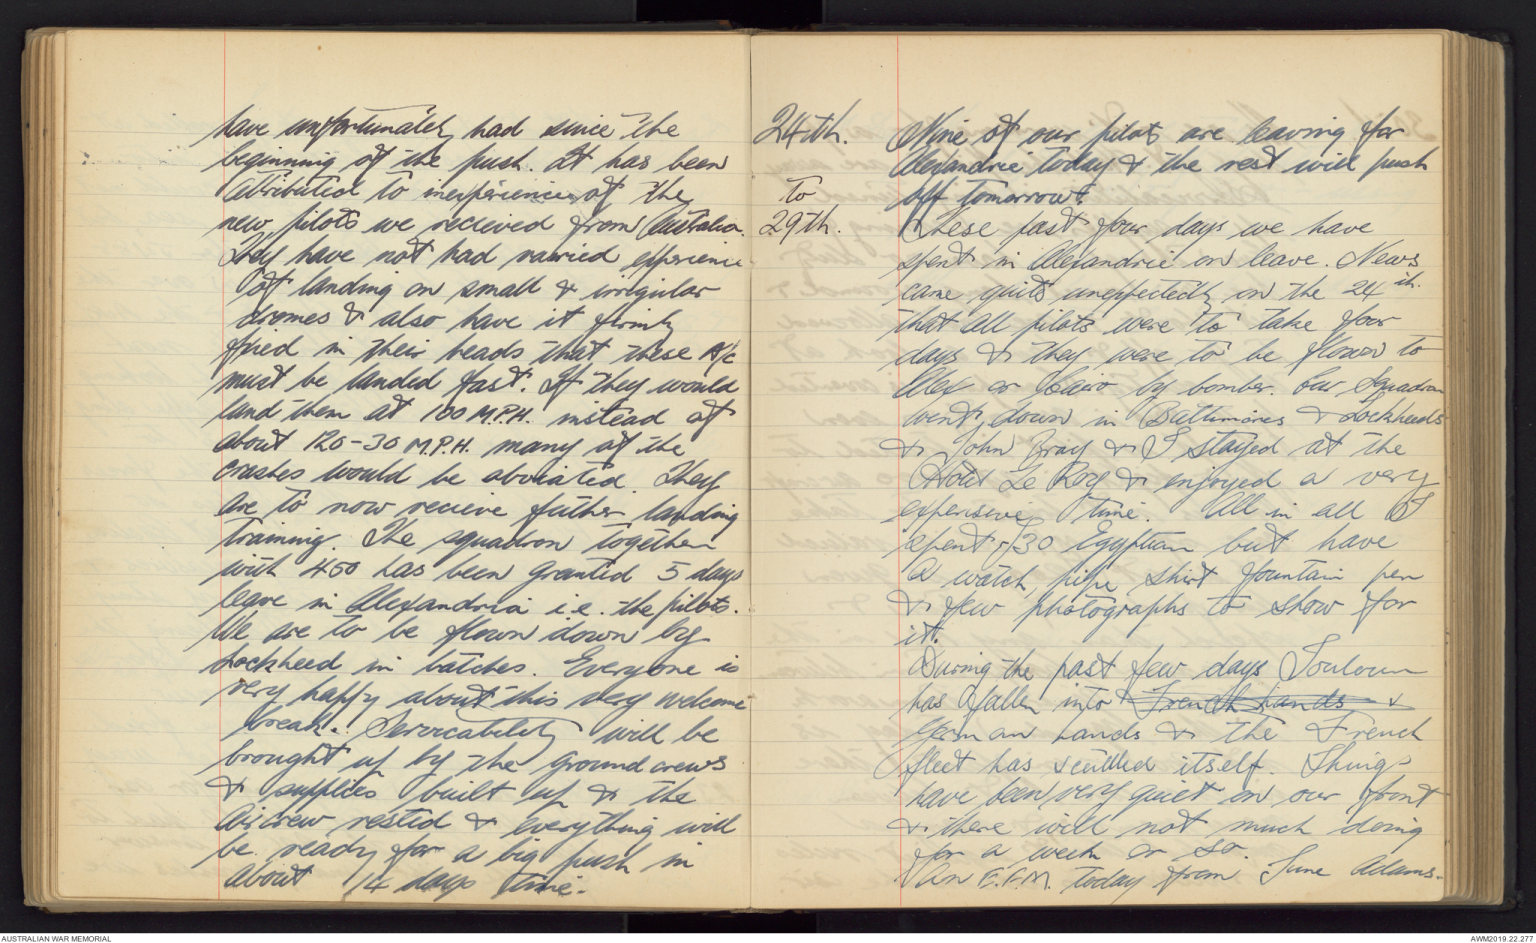 have unfortunately had since the
beginning of the push. It has been
attributed to inexperience of the
new pilots we recieved from Australia.
They have not had varried experience
of landing on small & irrigular
dromes & also have it firmly
fixed in their heads that these A/c
must be landed fast. If they would
land them at 100 M.P.H. instead of
about 120-30 M.P.H. many of the
crashes would be abviated. They
are to now recieve futher landing
training. The squadron together
with 450 has been granted 5 days
leave in Alexandria i.e. the pilots.
We are to be flown down by
Lockheed in batches. Everyone is
very happy about this very welcome
break. Servicability will be
brought up by the ground crews
& supplies built up & the
Aircrew rested & everything will
be ready for a big push in
about 14 days time.
24th. Nine of our pilots are leaving for
Alexandria today & the rest will push
to off tomorrow.
29th. These past four days we have
spent in Alexandria on leave. News
came quite unexpectedly on the 24th.
that all pilots were to take four
days & they were to be flown to
Alex or Cairo by bomber. Our Squadron
went down in Baltimores & Lockheeds
& John Gray & I stayed at the
Hotel Le Roy & enjoyed a very
expensive time. All in all I
spent £30 Egyptian but have
a watch, pipe, shirt fountain pen
& few photographs to show for
it.
During the past few days Touloun
has fallen into French hands &
German hands & the French
fleet has scuttled itself. Things
have been very quiet on our front
& there will not much doing
for a week or so.
An E.F.M. today from June Adams.
AUSTRALIAN WAR MEMORIAL
AWM2019.22.277